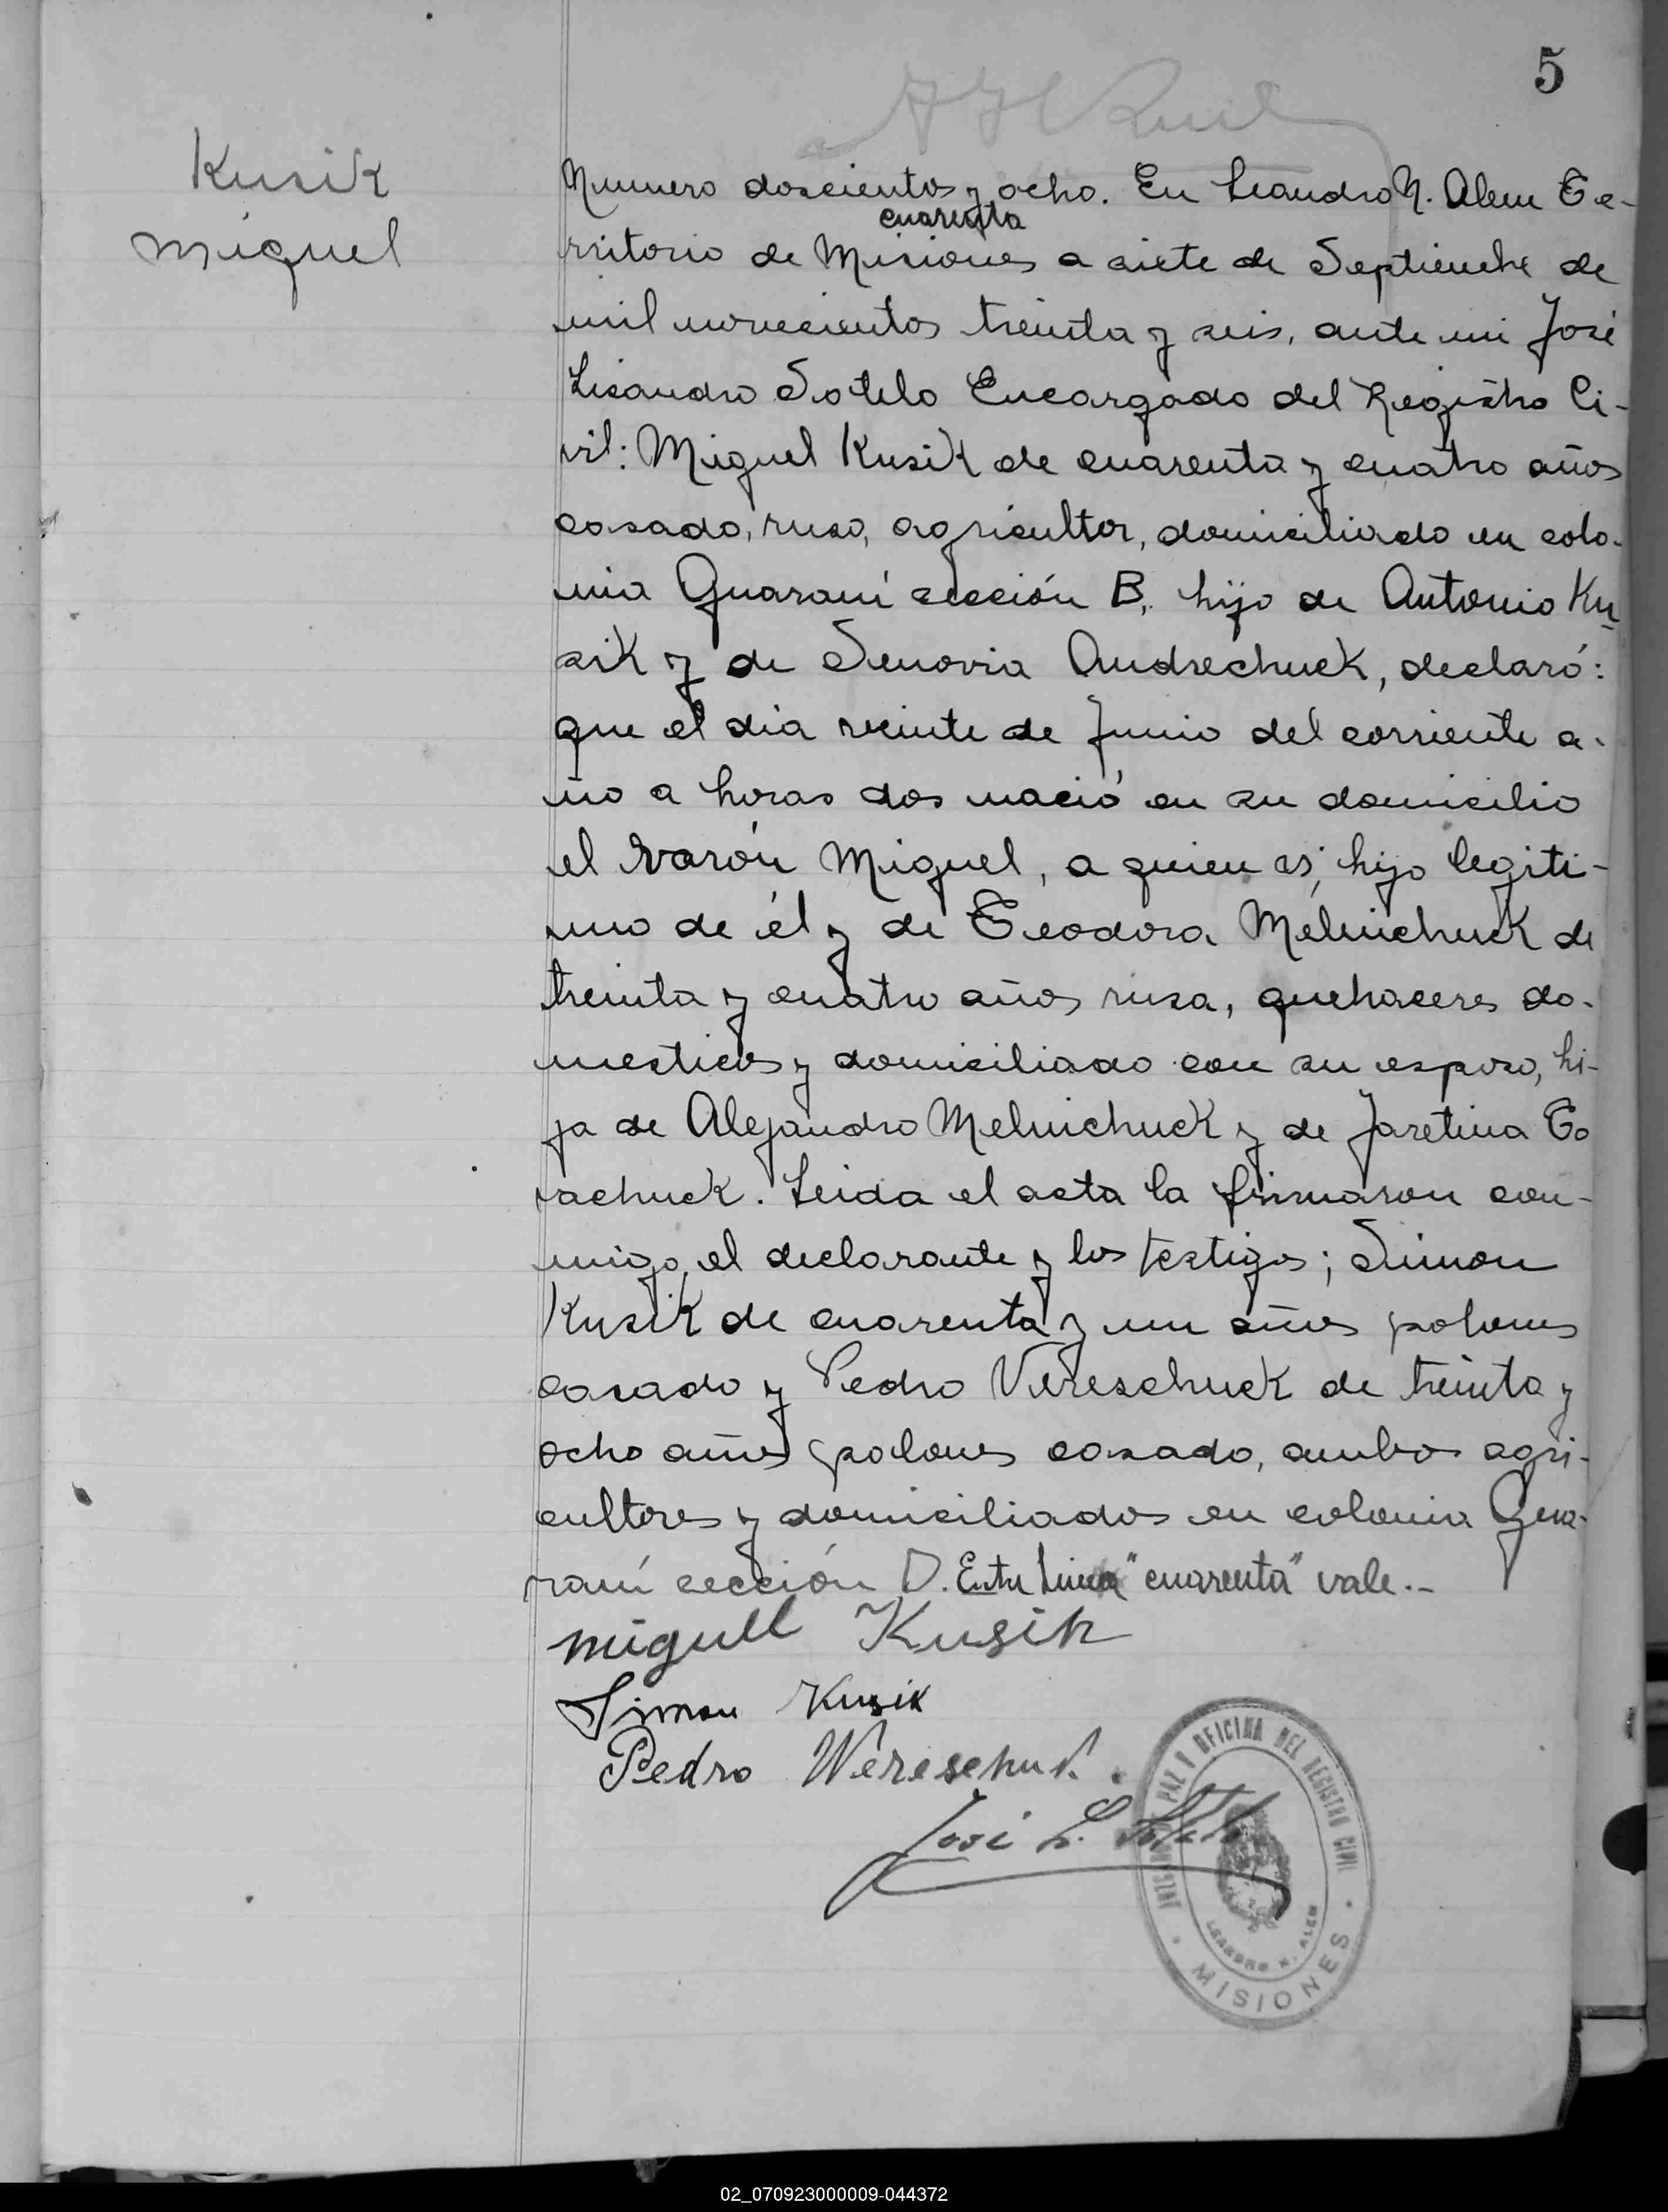 5
Kusik
Miguel
Numero doscientos y ocho. En Leandro N. Alem Te-
cuarenta
rritorio de Misiones a siete de Septiembre de
mil novecientos treinta y seis, ante mi José
Lisandro Sotelo Encargado del Registro Ci-
vil: Miguel Kusik de cuarenta y cuatro años
casado, ruso, agricultor, domiciliado en colo-
nia Guaraní sección B, hijo de Antonio Ku
sik y de Senovia Andrechuck, declaró:
que el dia veinte de Junio del corriente a-
ño a horas dos nació en su domicilio
el varón Miguel, a quien es; hijo legiti-
mo de él y de Teodora Melnichuck de
treinta y cuatro años rusa, quehaceres do-
mesticos y domiciliado con su esposo, hi-
ja de Alejandro Melnichuck y de Jaretina To
rachuck. Leida el acta la firmaron con-
migo, el declarante y los testigos; Simon
Kusik de cuarenta y un años polones
casado y Pedro Vereschuck de treinta y
ocho años polones casado, ambos agri-
cultores y domiciliados en colonia Gua-
raní sección D. Entre linea "cuarenta" vale.-
miguell Kusik
Simon Kusik
Pedro Wereschuk.
José L. Sotelo
JUZGADO DE PAZ Y OFICINA DEL REGISTRO CIVIL
LEANDRO N. ALEM
MISIONES
02_070923000009-044372